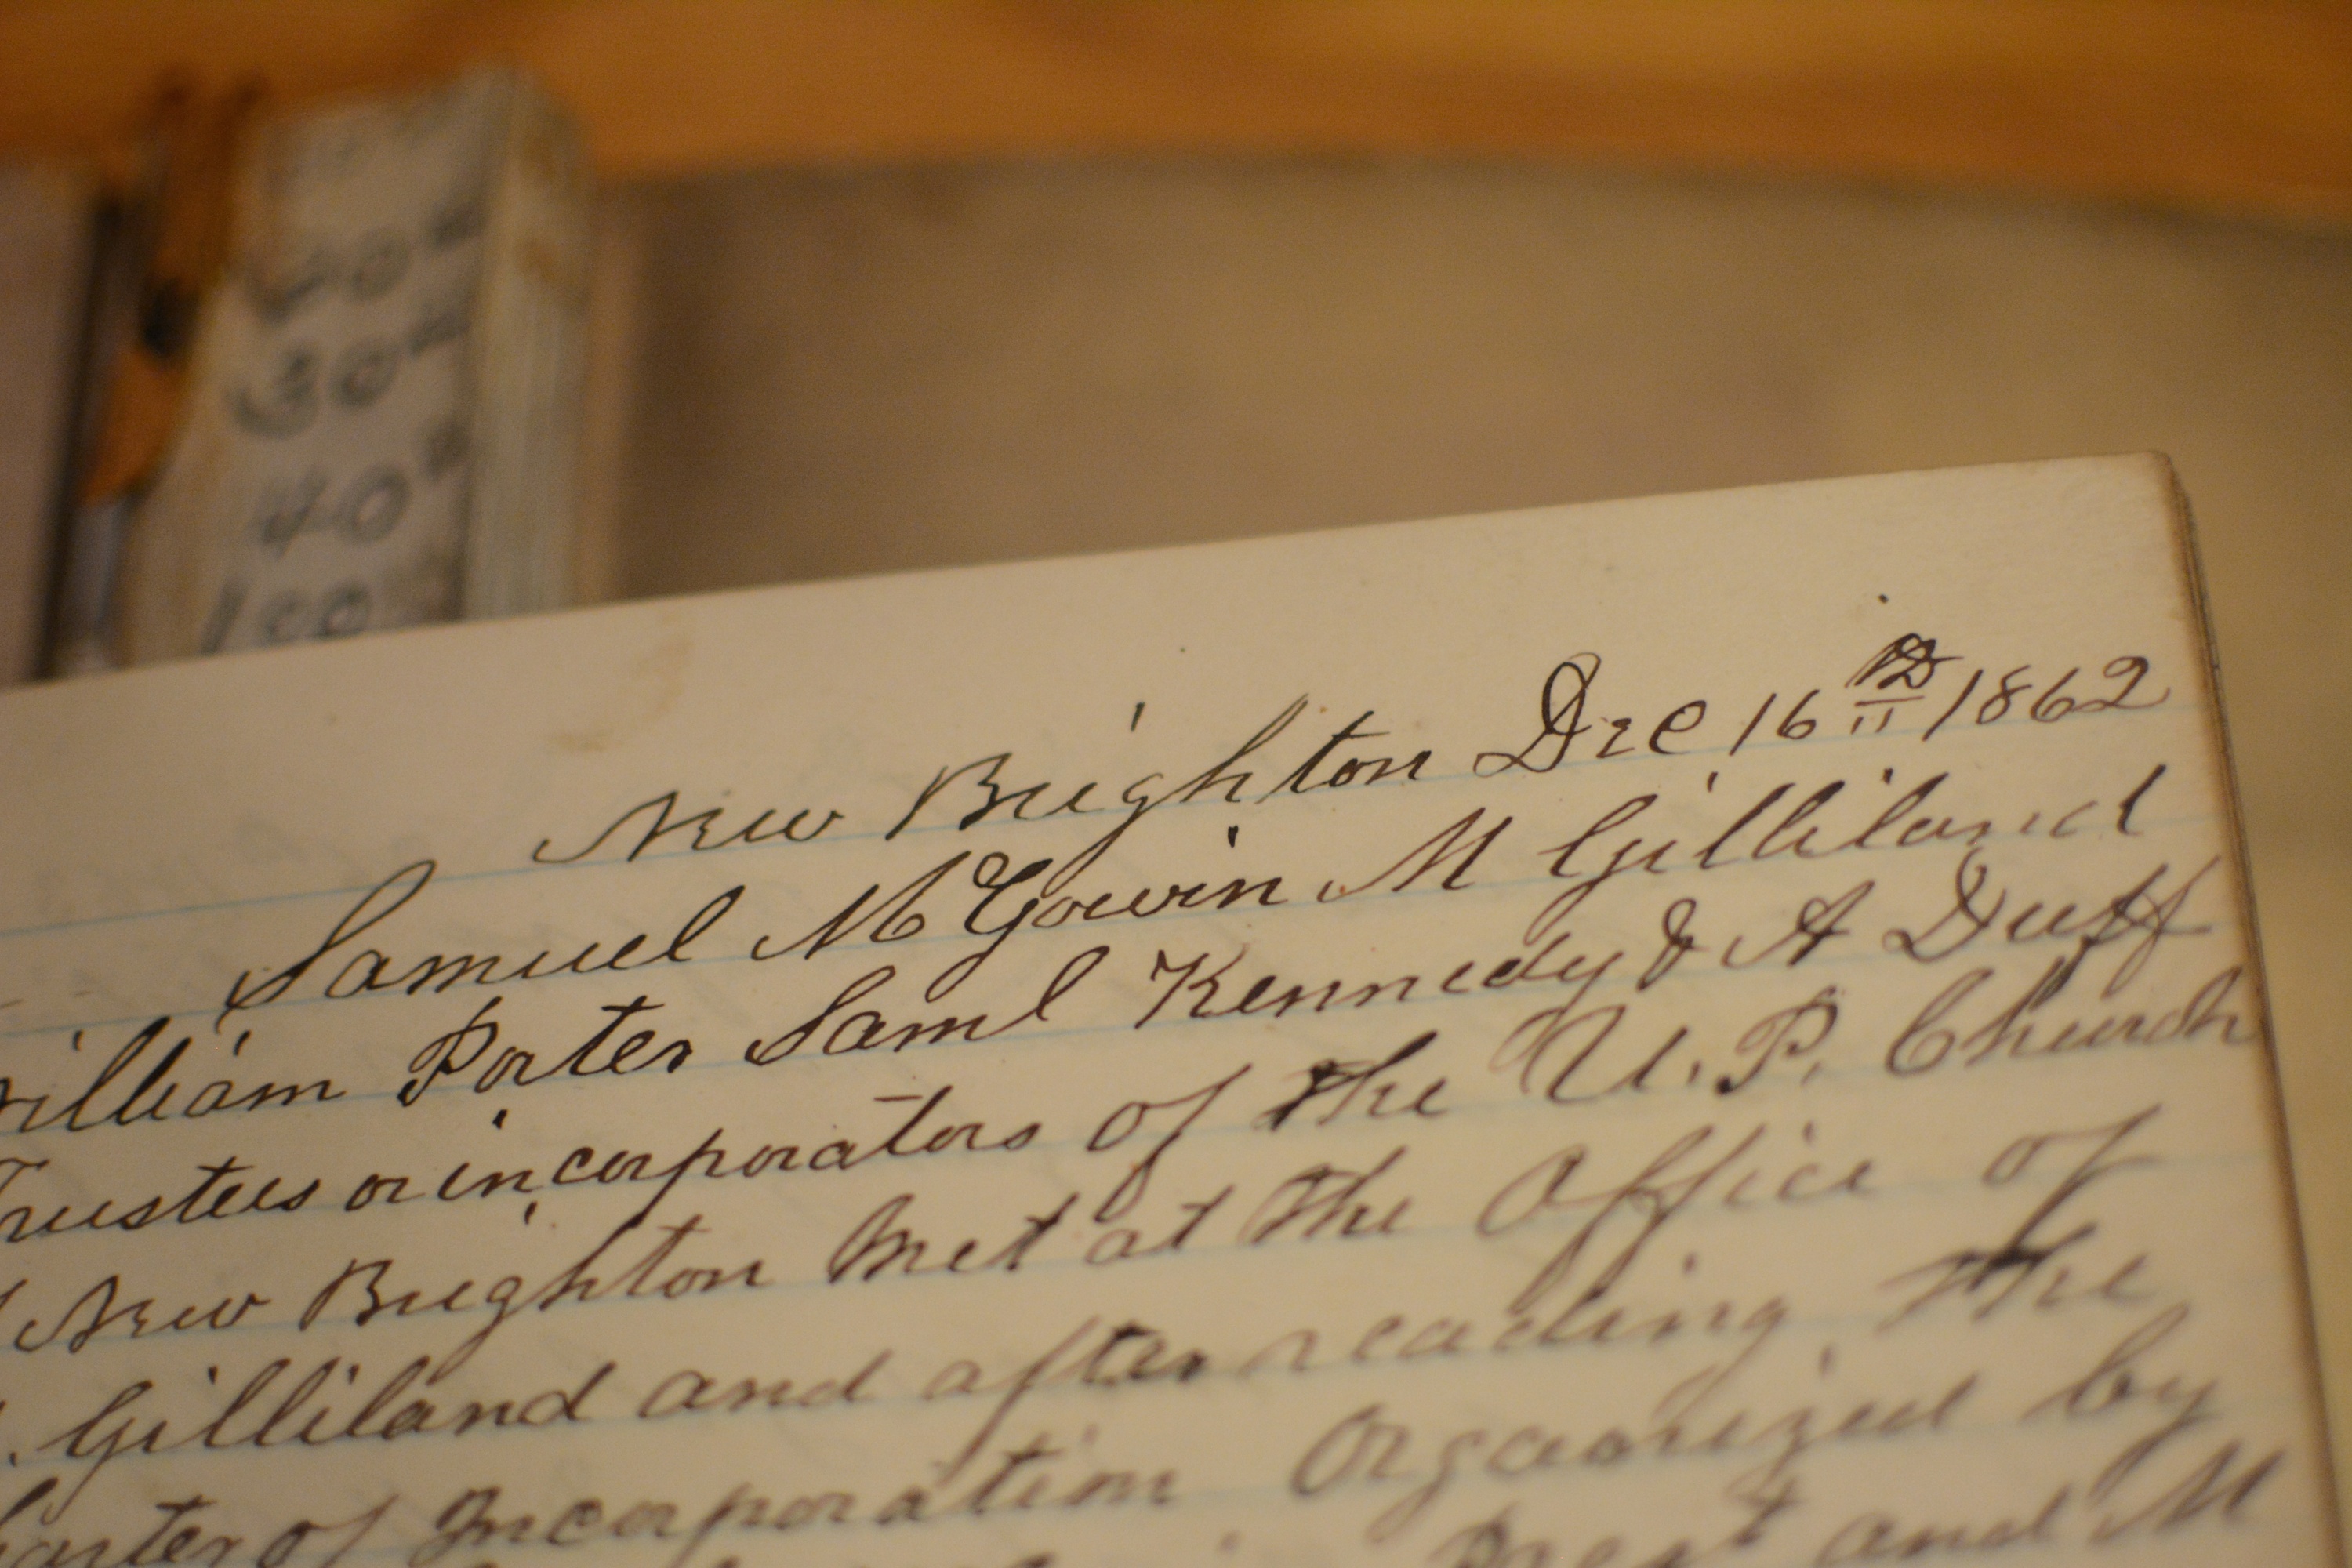 30
40
100
New Brighton Dec 16 1862
Samuel McGowin M Gilliland
William Porter Saml Kennedy & A Duff
Trustees or incorporators of the U.P. Church
New Brighton met at the Office of
Gilliland and after reading the
Charter of Incorporation Organized by
Prest and M